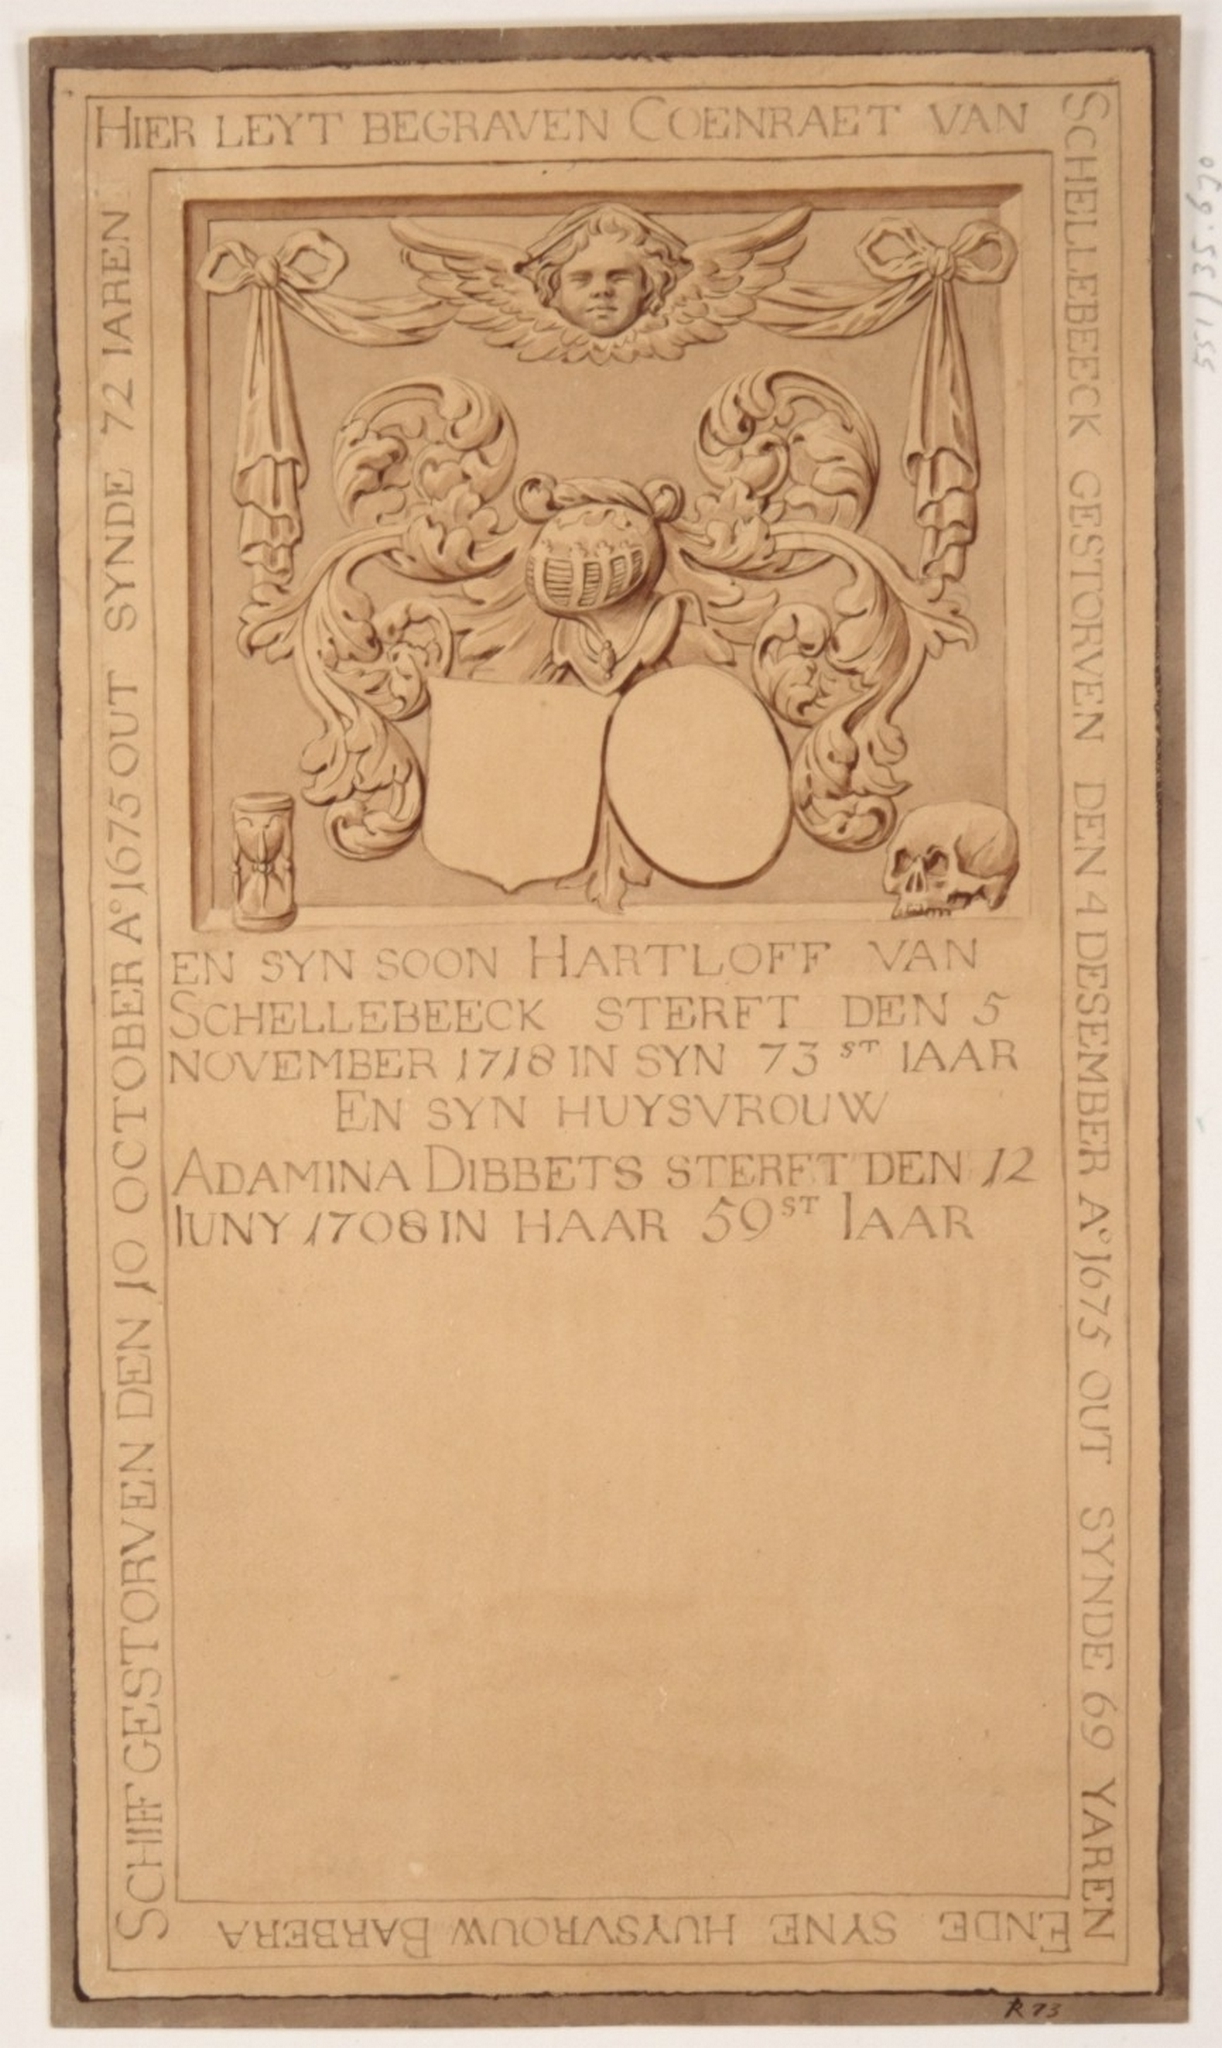 HIER LEYT BEGRAVEN COENRAET VAN
SCHELLEBEECK GESTORVEN DEN 4 DESEMBER Aº 1675 OUT SYNDE 69 YAREN
ENDE SYNE HUYSVROUW BARBERA
SCHIFF GESTORVEN DEN 10 OCTOBER Aº 1675 OUT SYNDE 72 IAREN
EN SYN SOON HARTLOFF VAN
SCHELLEBEECK STERFT DEN 5
NOVEMBER 1718 IN SYN 73ST IAAR
EN SYN HUYSVROUW
ADAMINA DIBBETS STERFT DEN 12
IUNY 1708 IN HAAR 59ST IAAR
R 73